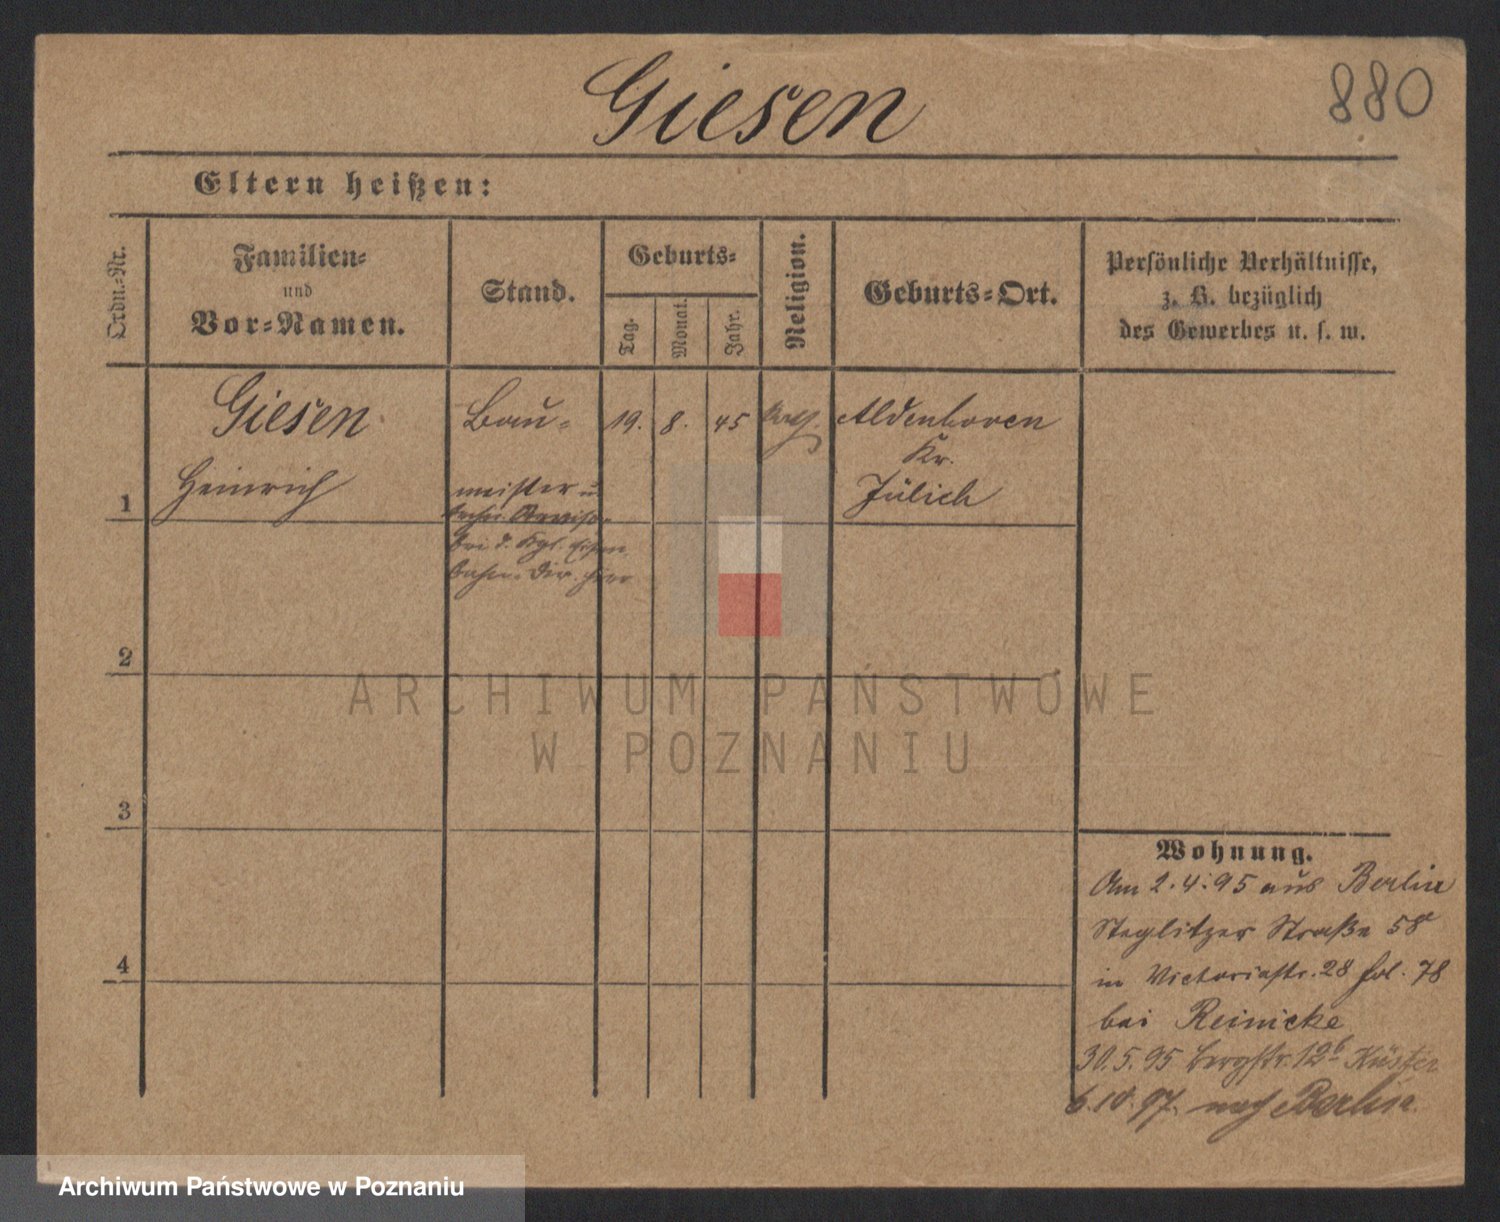 Giesen
880
Eltern heißen:
Ordn.-Nr.
Familien-
und
Vor-Namen.
Stand.
Geburts-
Tag.
Monat.
Jahr.
Religion.
Geburts-Ort.
Persönliche Verhältnisse,
z. B. bezüglich
des Gewerbes u. s. w.
Giesen Bau- 19. 8. 45 Aldenhoven
Kr.
1 Heinrich meister u. Jülich
bei d. Kgl. Eisen
bahn-Dir. hier
2
ARCHIWUM PAŃSTWOWE
W POZNANIU
3
Wohnung.
Am 2.4.95 aus Berlin
Steglitzer Straße 58
4
in Victoriastr. 28 fol. 78
bei Reinicke
30.5.95 Bergstr. 12b Küster
6.10.97. nach Berlin
Archiwum Państwowe w Poznaniu